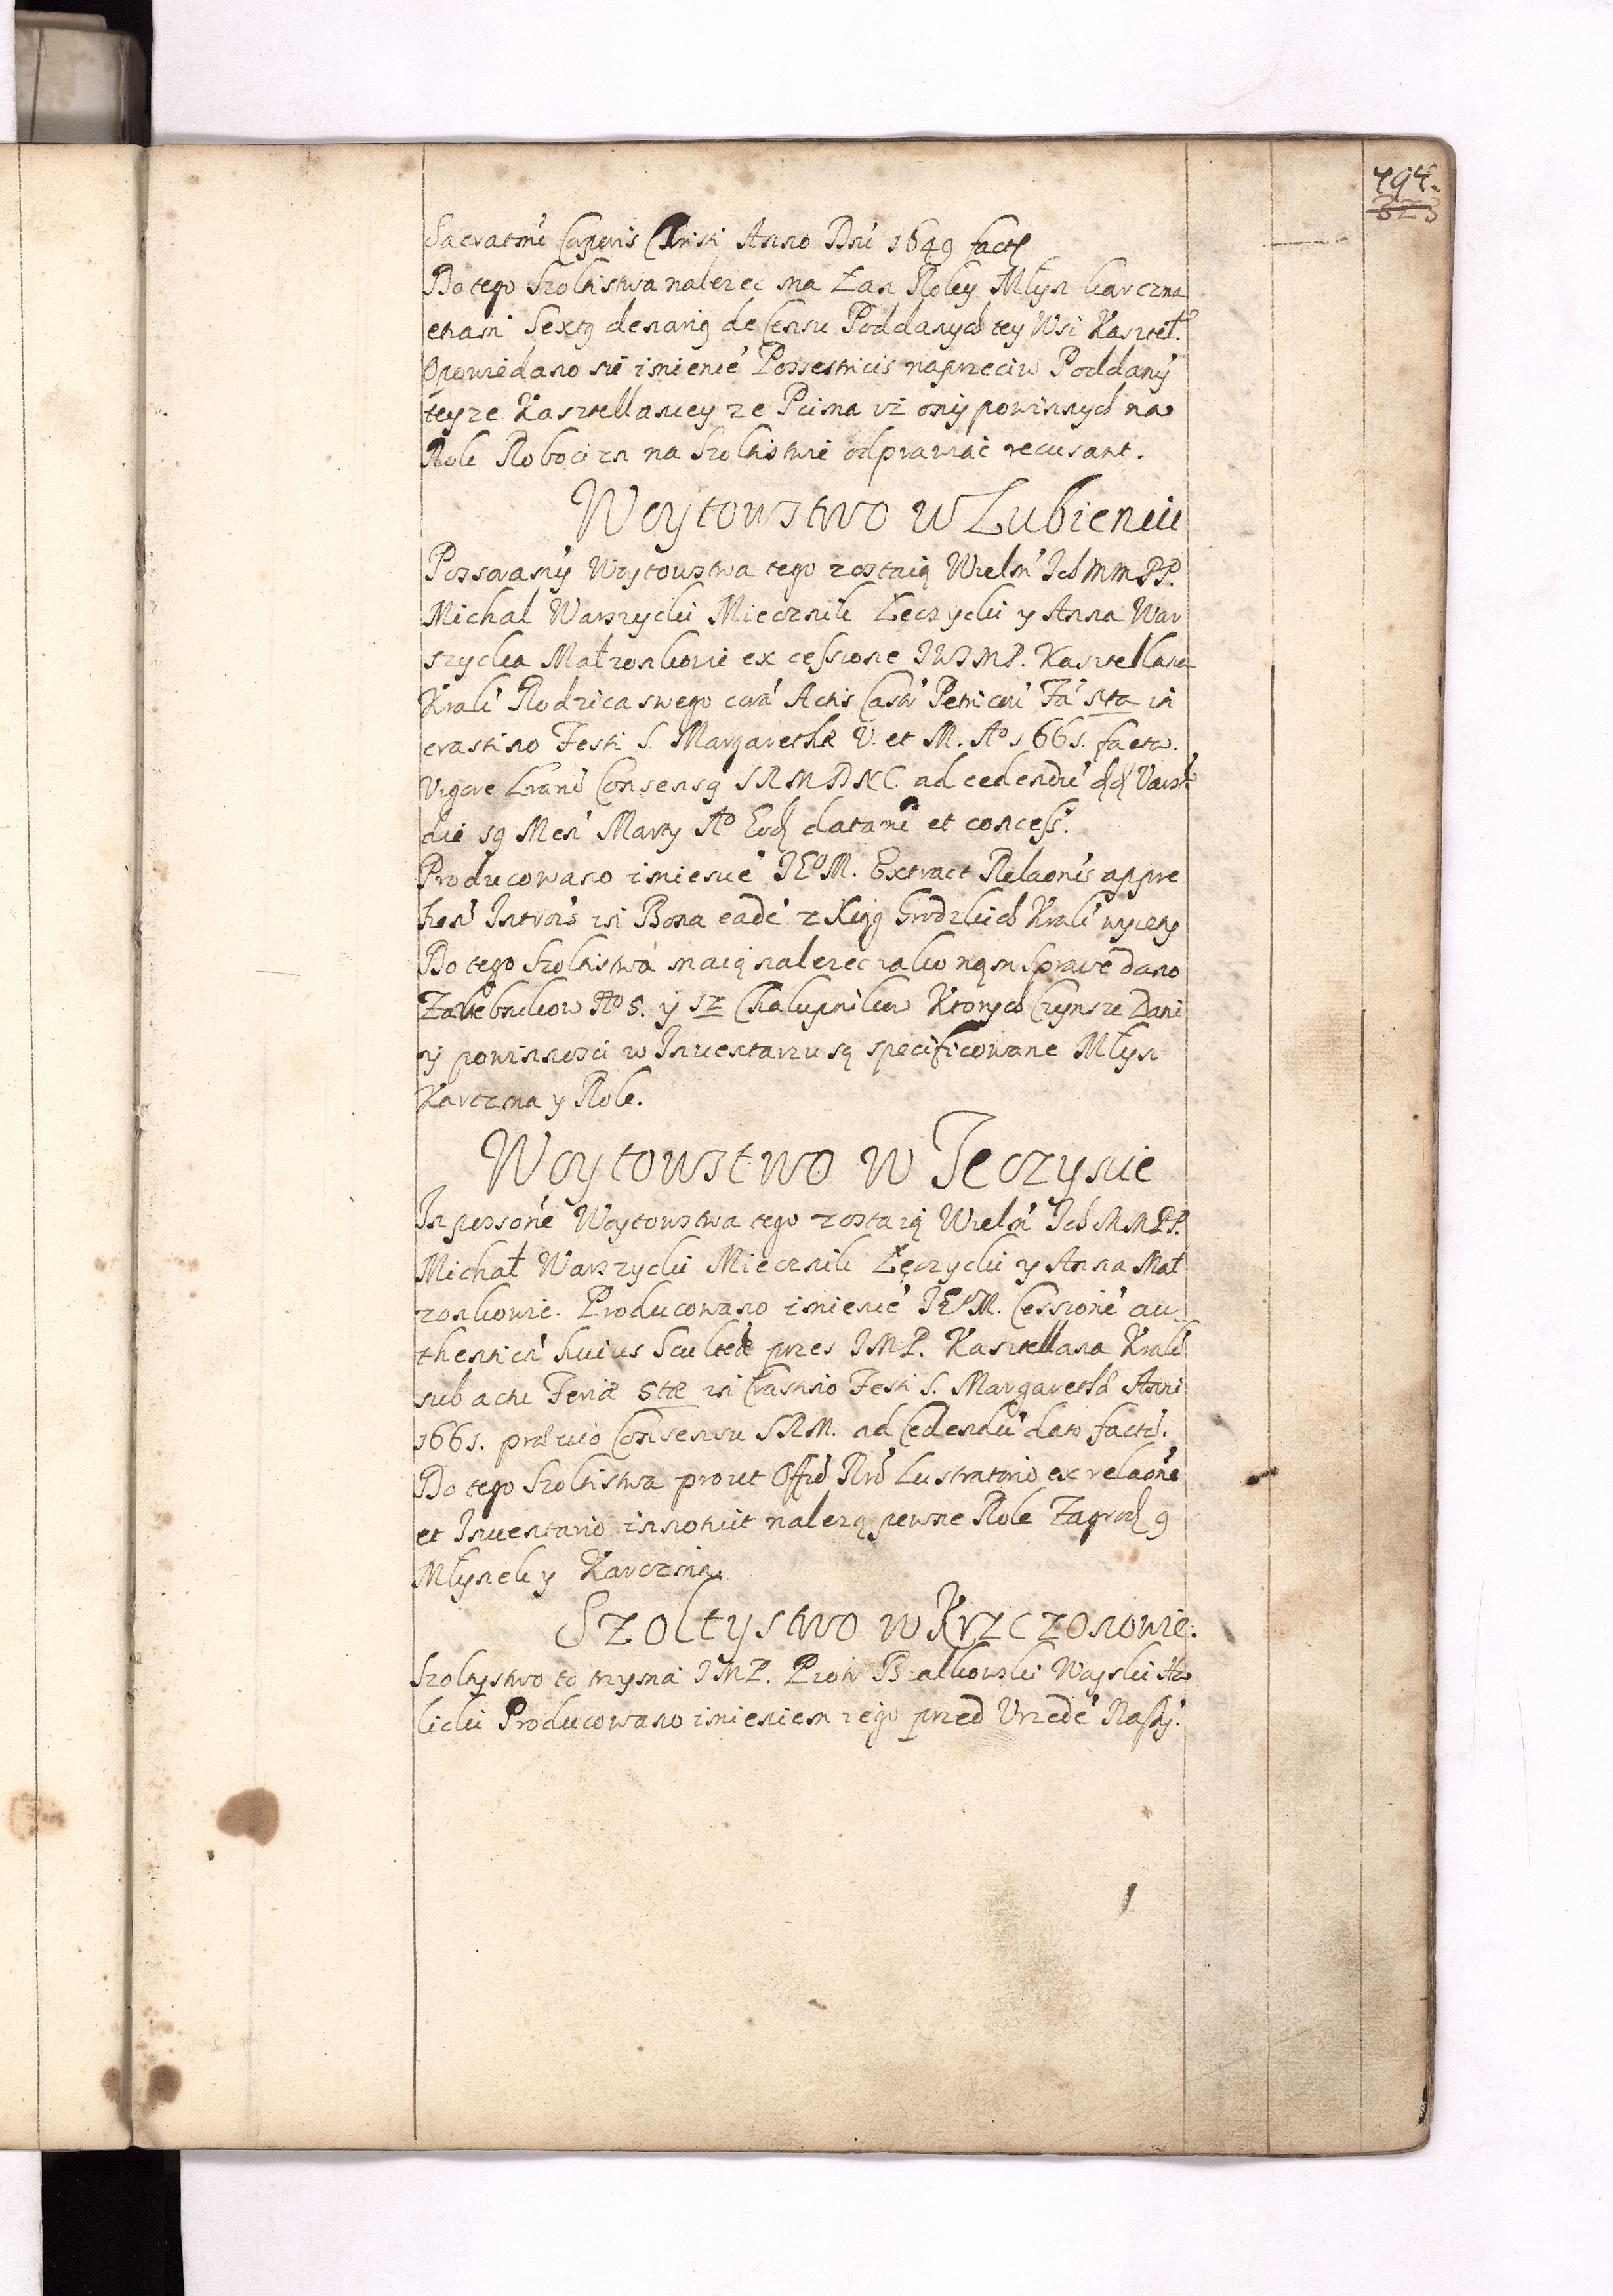 494.
323
Sacratmi Corporis Christi Anno Dni 1649 fact
Do tego Szoltistwa nalezec ma Łan Roley Młyn karczma
etiam Sextq denariq de Censu Poddanych tey Wsi Kasztel.
Opowiedano sie imienié Possestricis naprzeciw Poddany
teyze Kasztellaniey ze Pcima iż oni powinnych na
Role Robocizn na Szoltistwie odprawiac recusant.
Woytowstwo w Lubieniu
Possorami Woytowstwa tego zostaią Wielm Ich MM PP.
Michal Warszycki Miecznik Łeczycki y Anna War
szycka Małzonkowie ex cessione JWJMP. Kasztellana
Krak Rodzica swego corá Actis Castr Petricou Fa 5ta in
crastino Festi S. Margarethæ V. et M. Aº 1661. facta.
Vigore Consensq SRM DNC ad cedendú Varsae
die 19 Men Marty Aº datarú et concess.
Producowano imienié JEºM. Extract Relaonis appre
hen Introis in Bona eadé z Xiąg Grodzkich Krak wyięty
Do tego Szoltistwa maią nalezec iako nąm Sprawé dano
Zarebnikow Nº 5. y 12 Chalupnikow Ktorych Czynsze Dani
y powinnosci w Inuentarzu są specificowane Młyn
Karczma y Role.
Woytowstwo w Teczynie
In possoné Woytowstwa tego zostaią Wielm Ich MMPP.
Michał Warszycki Miecznik Łęczycki y Anna Mał
zonkowie. Producowano imienié JEºM. Cessioné au
thenticá huius Scultæ przes JMP. Kasztellana Krak
sub actu Feriæ 5tæ in Crastino Festi S. Margarethæ Anni
1661. præuio Consensu SRM. ad Cedendú dato factá.
Do tego Szoltistwa prout Offio Nro Lustratorio ex relaoné
et Inuentario innotuit nalezą pewne Role Zagrod 9
Młynek y Karczma.
Szoltystwo w Krzczonowie.
Szoltystwo to trzyma JMP. Piotr Białkowski Woyski Ha
licki Producowano imieniem iego przed Vrzedé Naszy.